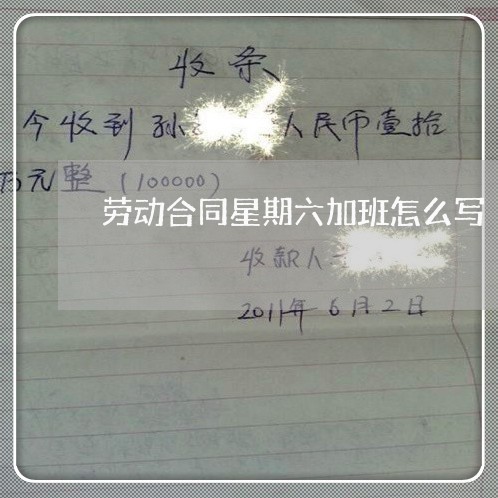 收条
今收到孙 人民币壹拾
万元整（100000）
劳动合同星期六加班怎么写
收款人
2011年6月2日